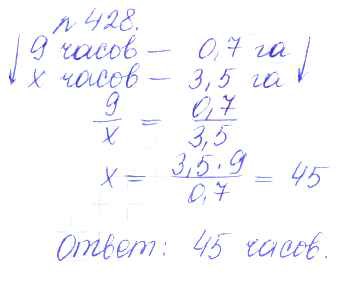 п 428.
↓ 9 часов — 0,7 га ↓
х часов — 3,5 га
9/х = 0,7/3,5
х = 3,5·9/0,7 = 45
Ответ: 45 часов.